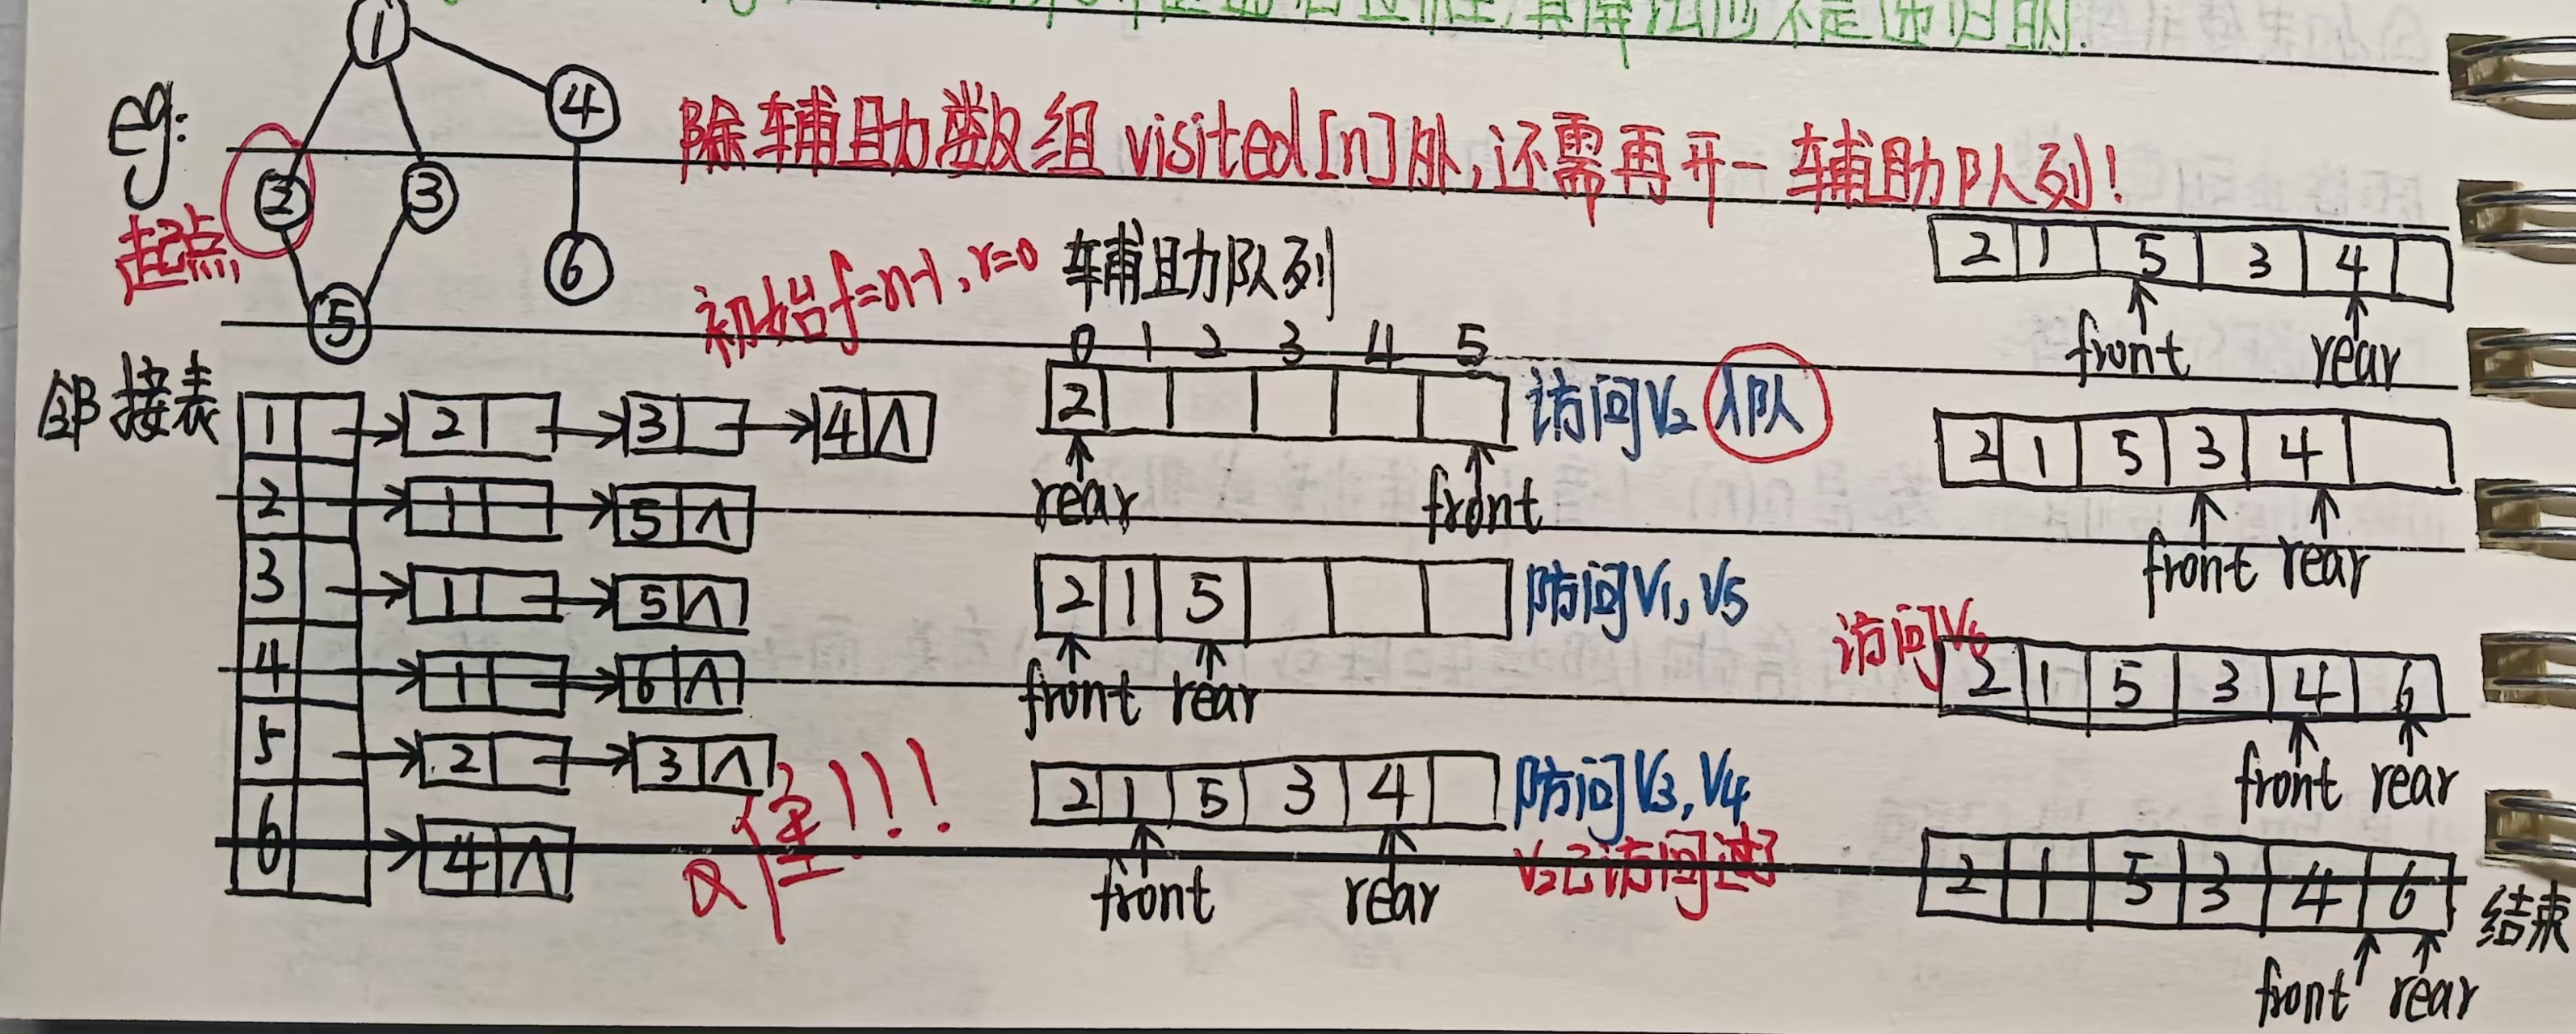 其算法也不是递归的.
eg:
1
4
2
3
6
5
起点
除辅助数组 visited[n]外,还需再开一辅助队列!
初始f=n-1,r=0
辅助队列
0 1 2 3 4 5
邻接表
1 → 2 → 3 → 4 ∧
2 → 1 → 5 ∧
3 → 1 → 5 ∧
4 → 1 → 6 ∧
5 → 2 → 3 ∧
6 → 4 ∧
!!!
2
访问V₂ 入队
rear front
2 1 5
访问V₁, V₅
front rear
2 1 5 3 4
访问V₃, V₄
V₂已访问过
front rear
2 1 5 3 4
front rear
2 1 5 3 4
front rear
访问V₆
2 1 5 3 4 6
front rear
2 1 5 3 4 6
结束
front rear